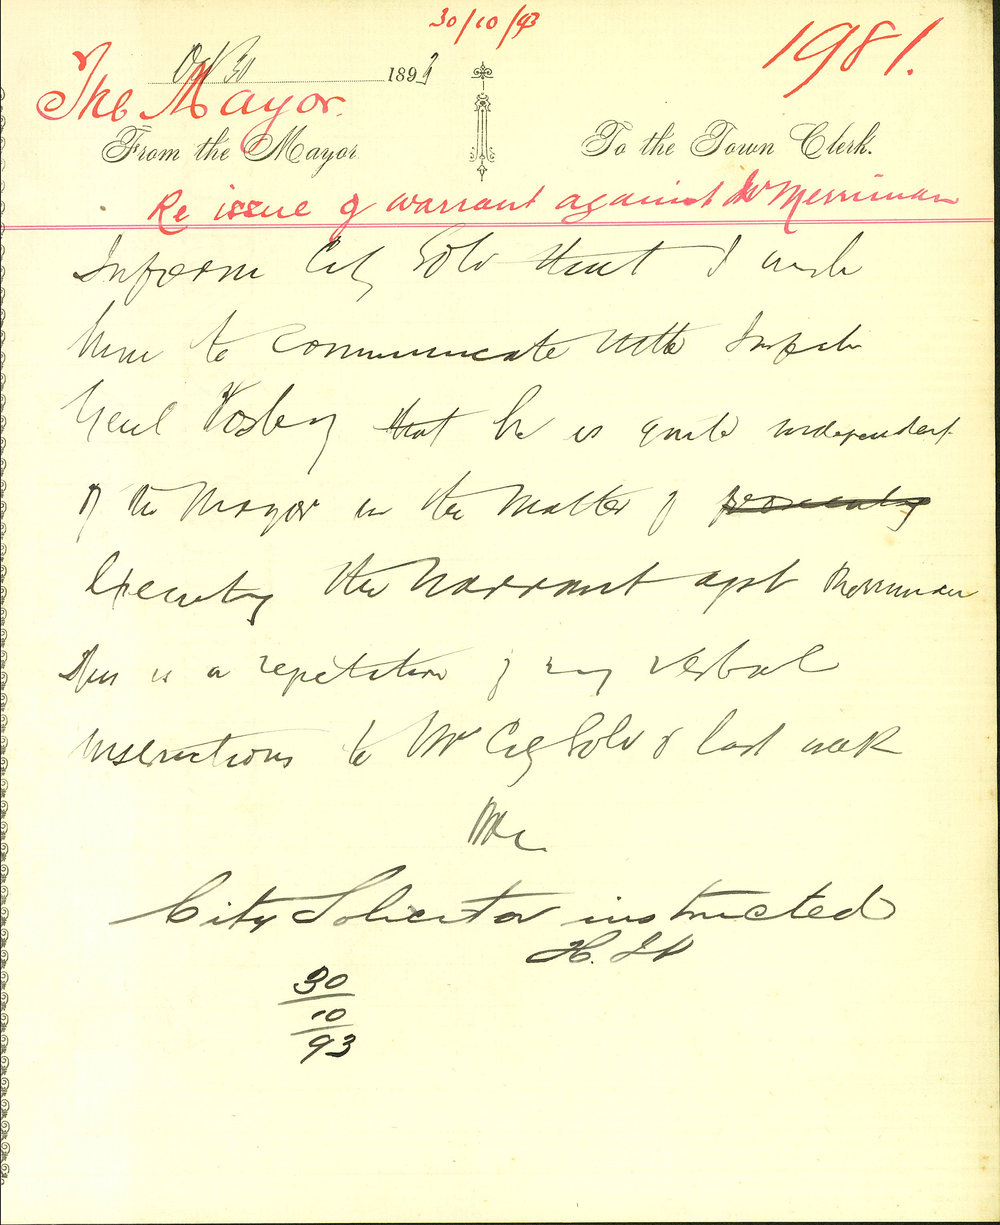 30/10/93
1981.
Oct 30 1893
The Mayor.
From the Mayor To the Town Clerk.
Re issue of warrant against W Merriman
Inform City Solr that I wish
him to communicate with Inspctr
Genl Fosbery that he is quite independent
of the Mayor in the matter of
Executing the Warrant agst Merriman
This is a repetition of my verbal
instructions to Mr City Solr of last week
City Solicitor instructed
30
10
93